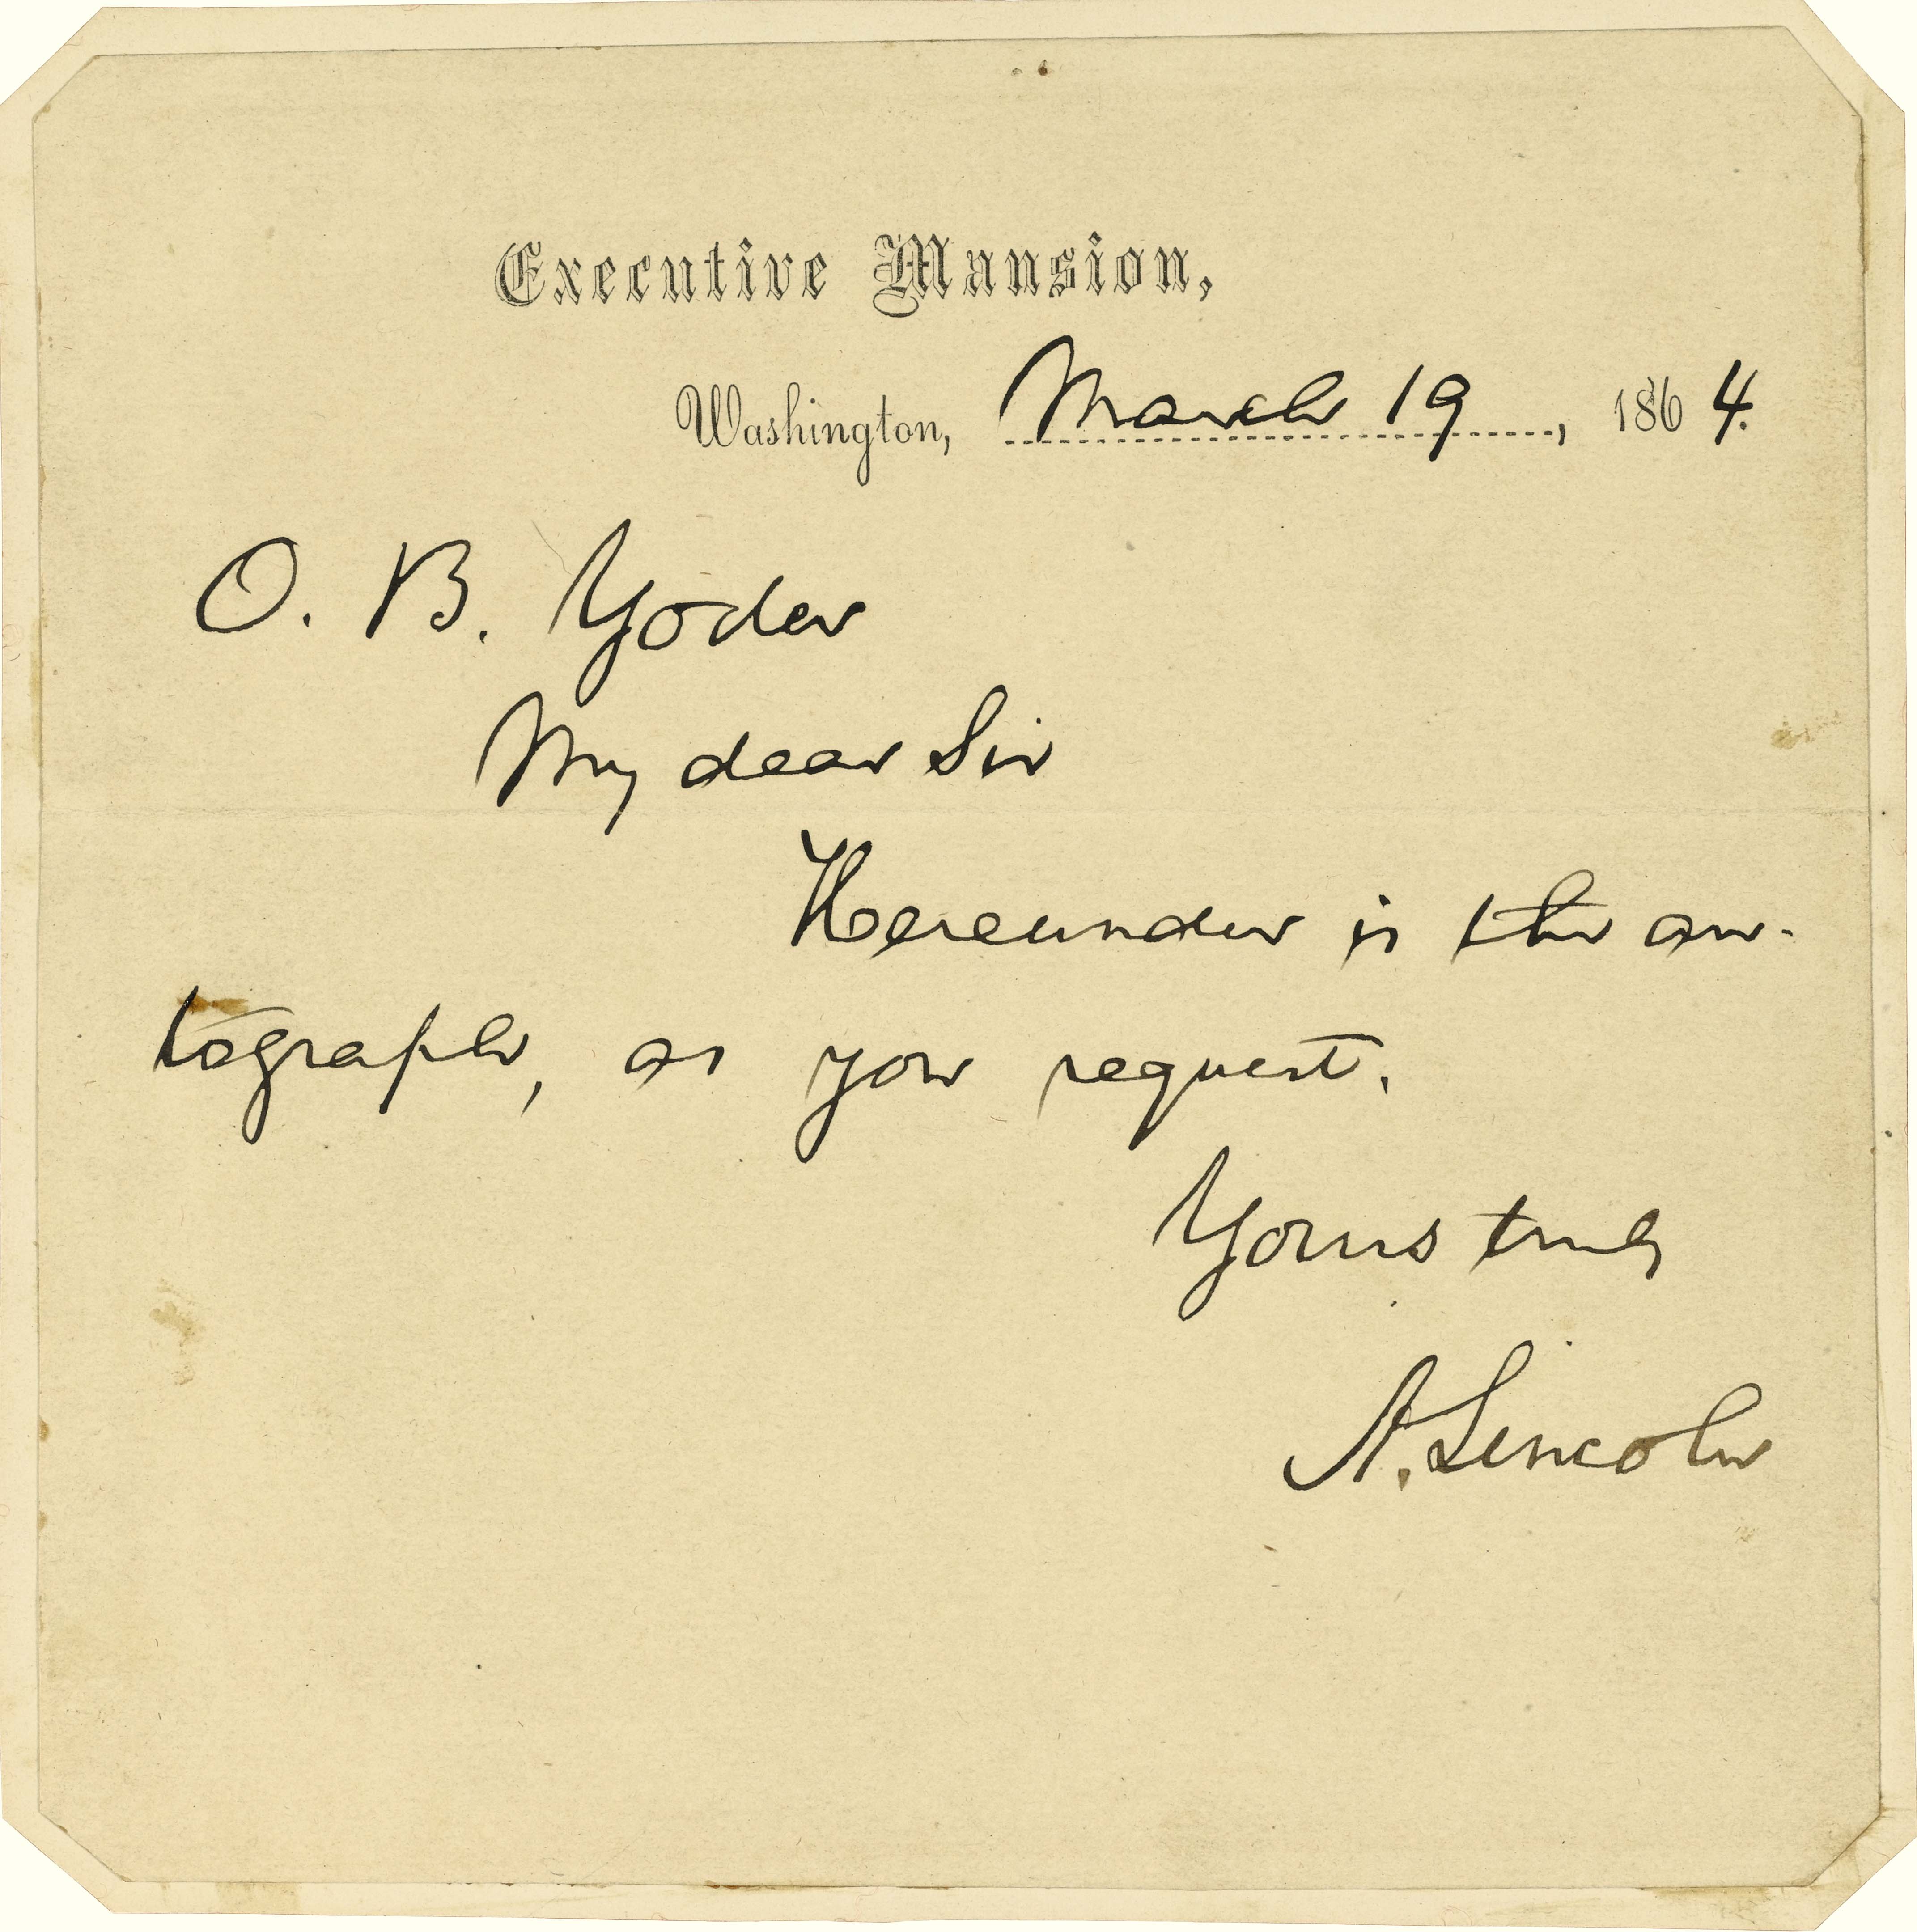 Executive Mansion,
Washington, March 19, 1864.
O. B. Yoder
My dear Sir
Hereunder is the au-
tograph, as you request.
Yours truly
A. Lincoln